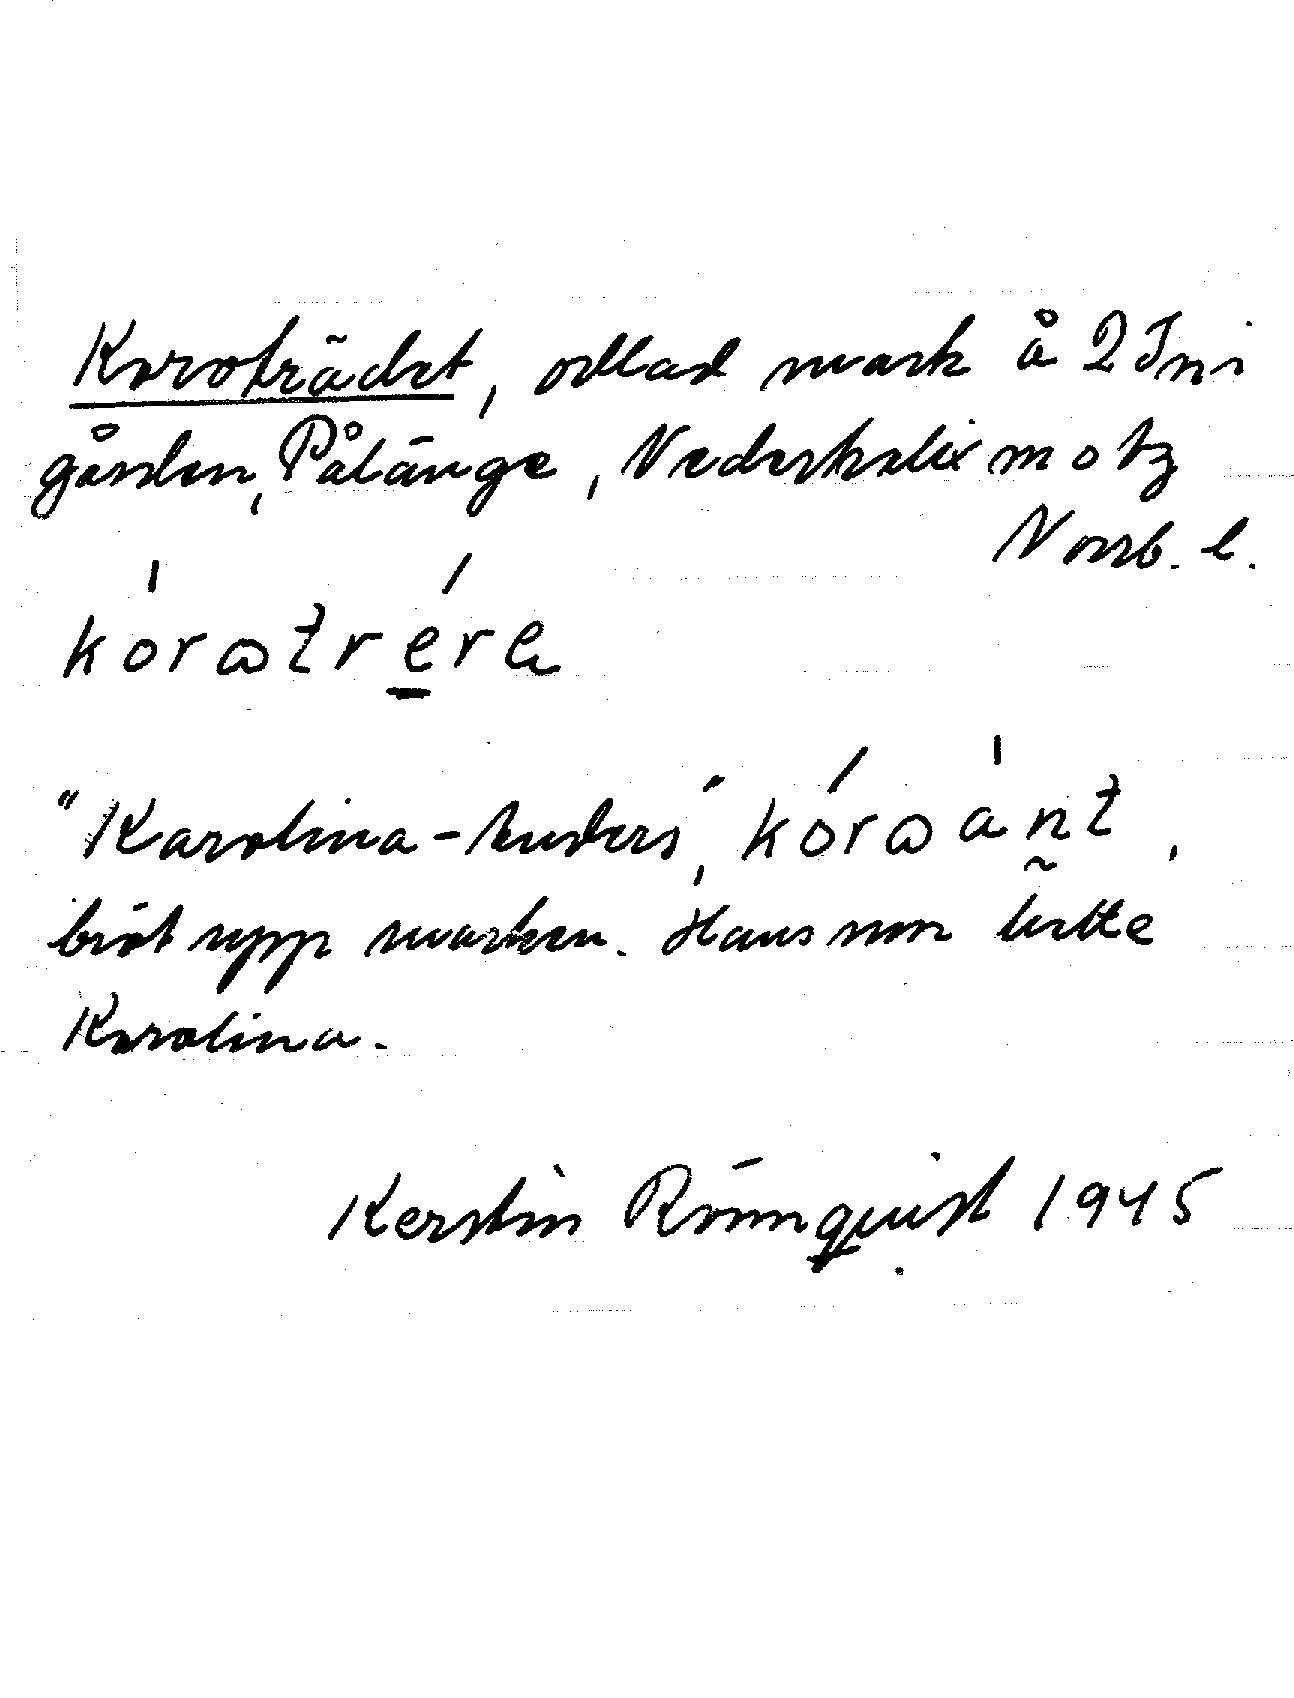 Karoträdet, odlad mark å 2 Jni
gården, Pålänge, Nederkalix motz
Norrb. l.
kóroträ́re
"Karolina-Anders", kóroánt,
bröt upp marken. Hans mor hette
Karolina.
Kerstin Rönnquist 1945